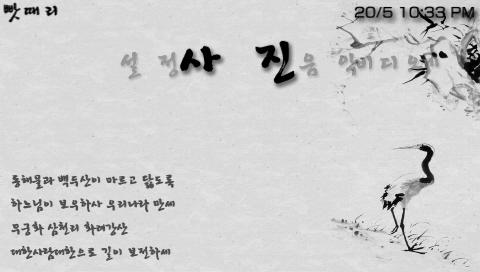 빳때리
20/5 10:33 PM
설 정 사 진 음 악 비 디 오
동해물과 백두산이 마르고 닳도록
하느님이 보우하사 우리나라 만세
무궁화 삼천리 화려강산
대한사람대한으로 길이 보전하세